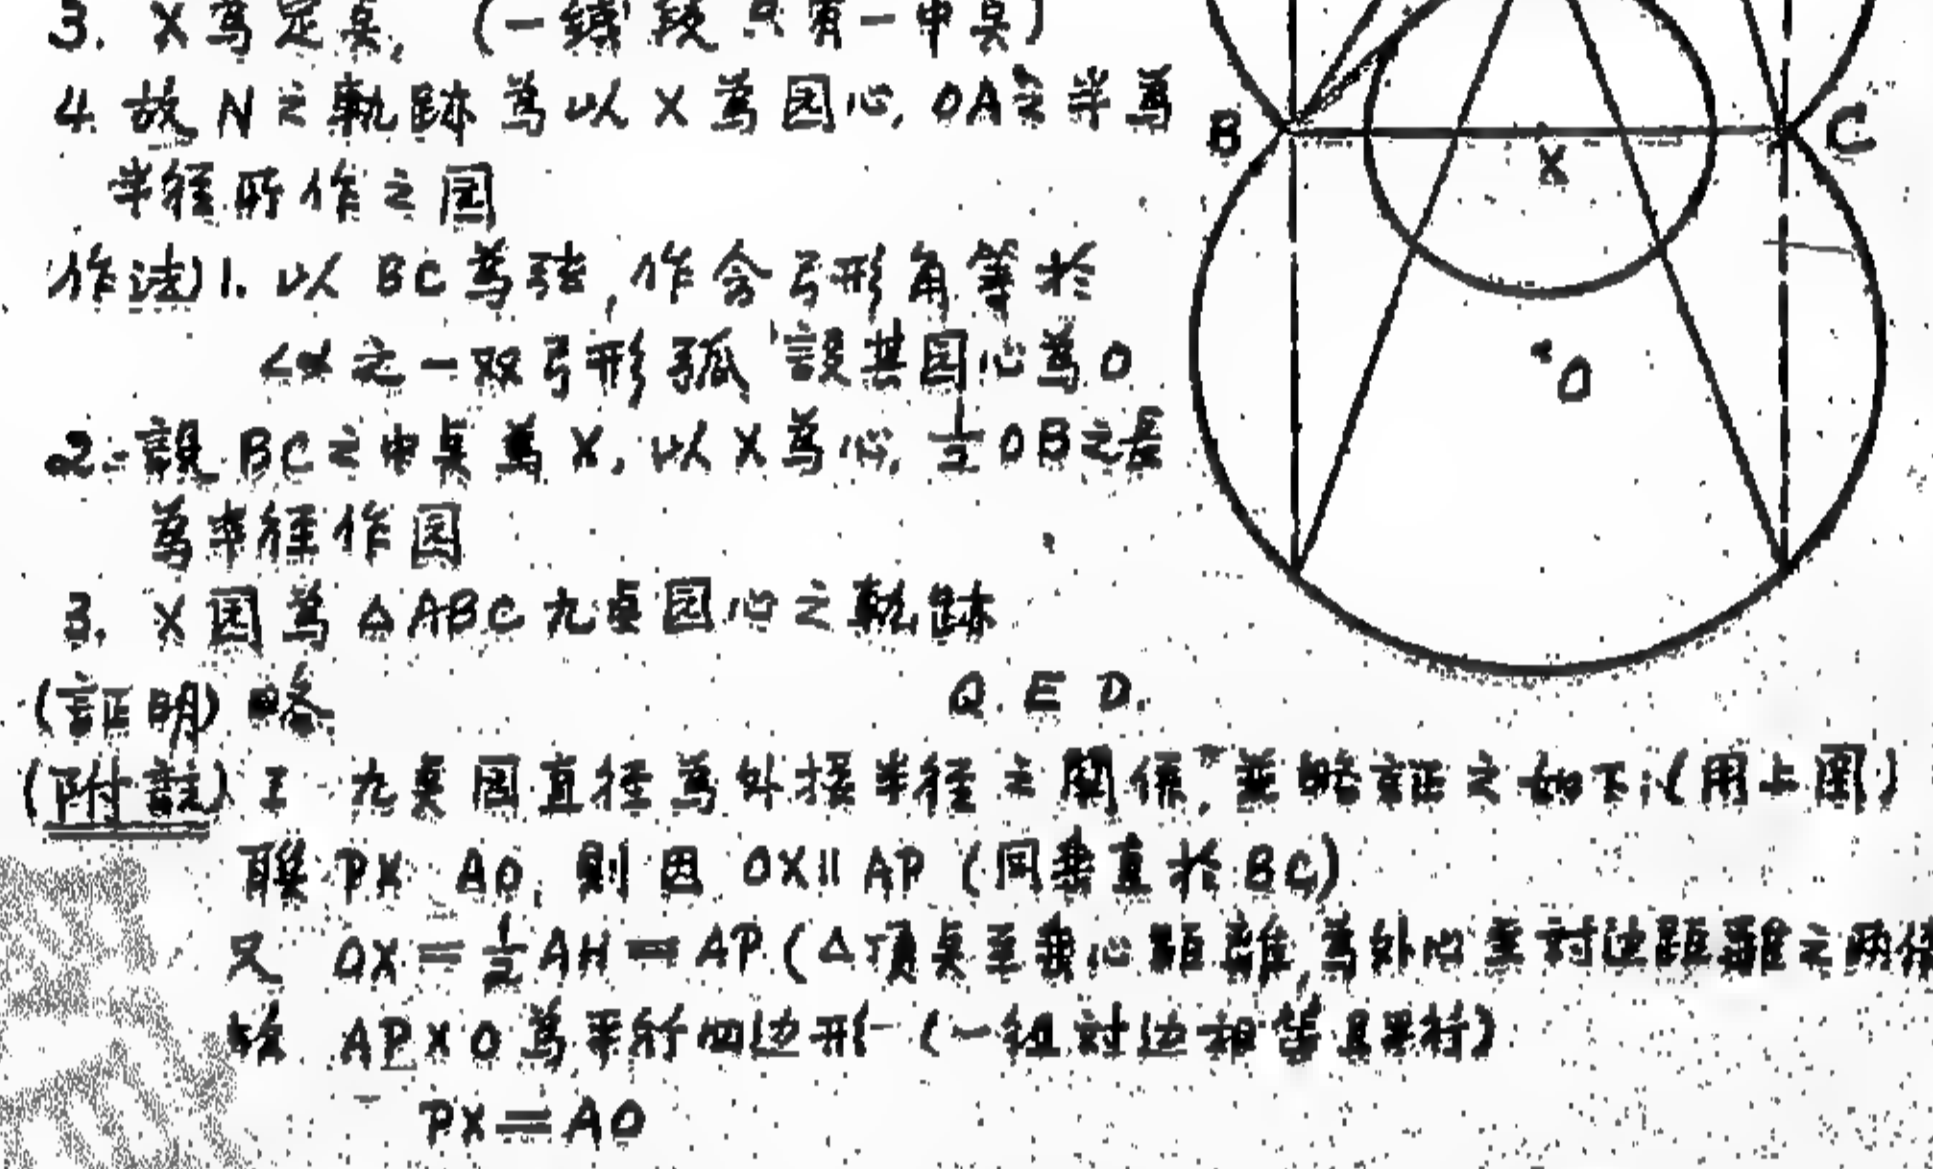 3. X爲定点, (一綫段只有一中点)
4. 故 N 之軌跡爲以 X 爲园心, OA之半爲
半径所作之园
作法)1. 以 BC 爲弦, 作含弓形角等於
∠α 之一双弓形弧 設其园心爲 O
2. 設 BC 之中点爲 X, 以 X 爲心, ½OB之長
爲半径作园
3. X 园爲 △ABC 九点园心之軌跡
(証明) 略 Q. E. D.
(附註) I 九点园直径爲外接半径之関係, 並略証之如下:(用上图)
聯 PX AO, 則因 OX∥AP (同垂直於 BC)
又 OX=½AH=AP (△頂点至垂心距離, 爲外心至対边距離之两倍
故 APXO 爲平行四边形 (一組対边相等且平行)
PX=AO
B
C
X
O